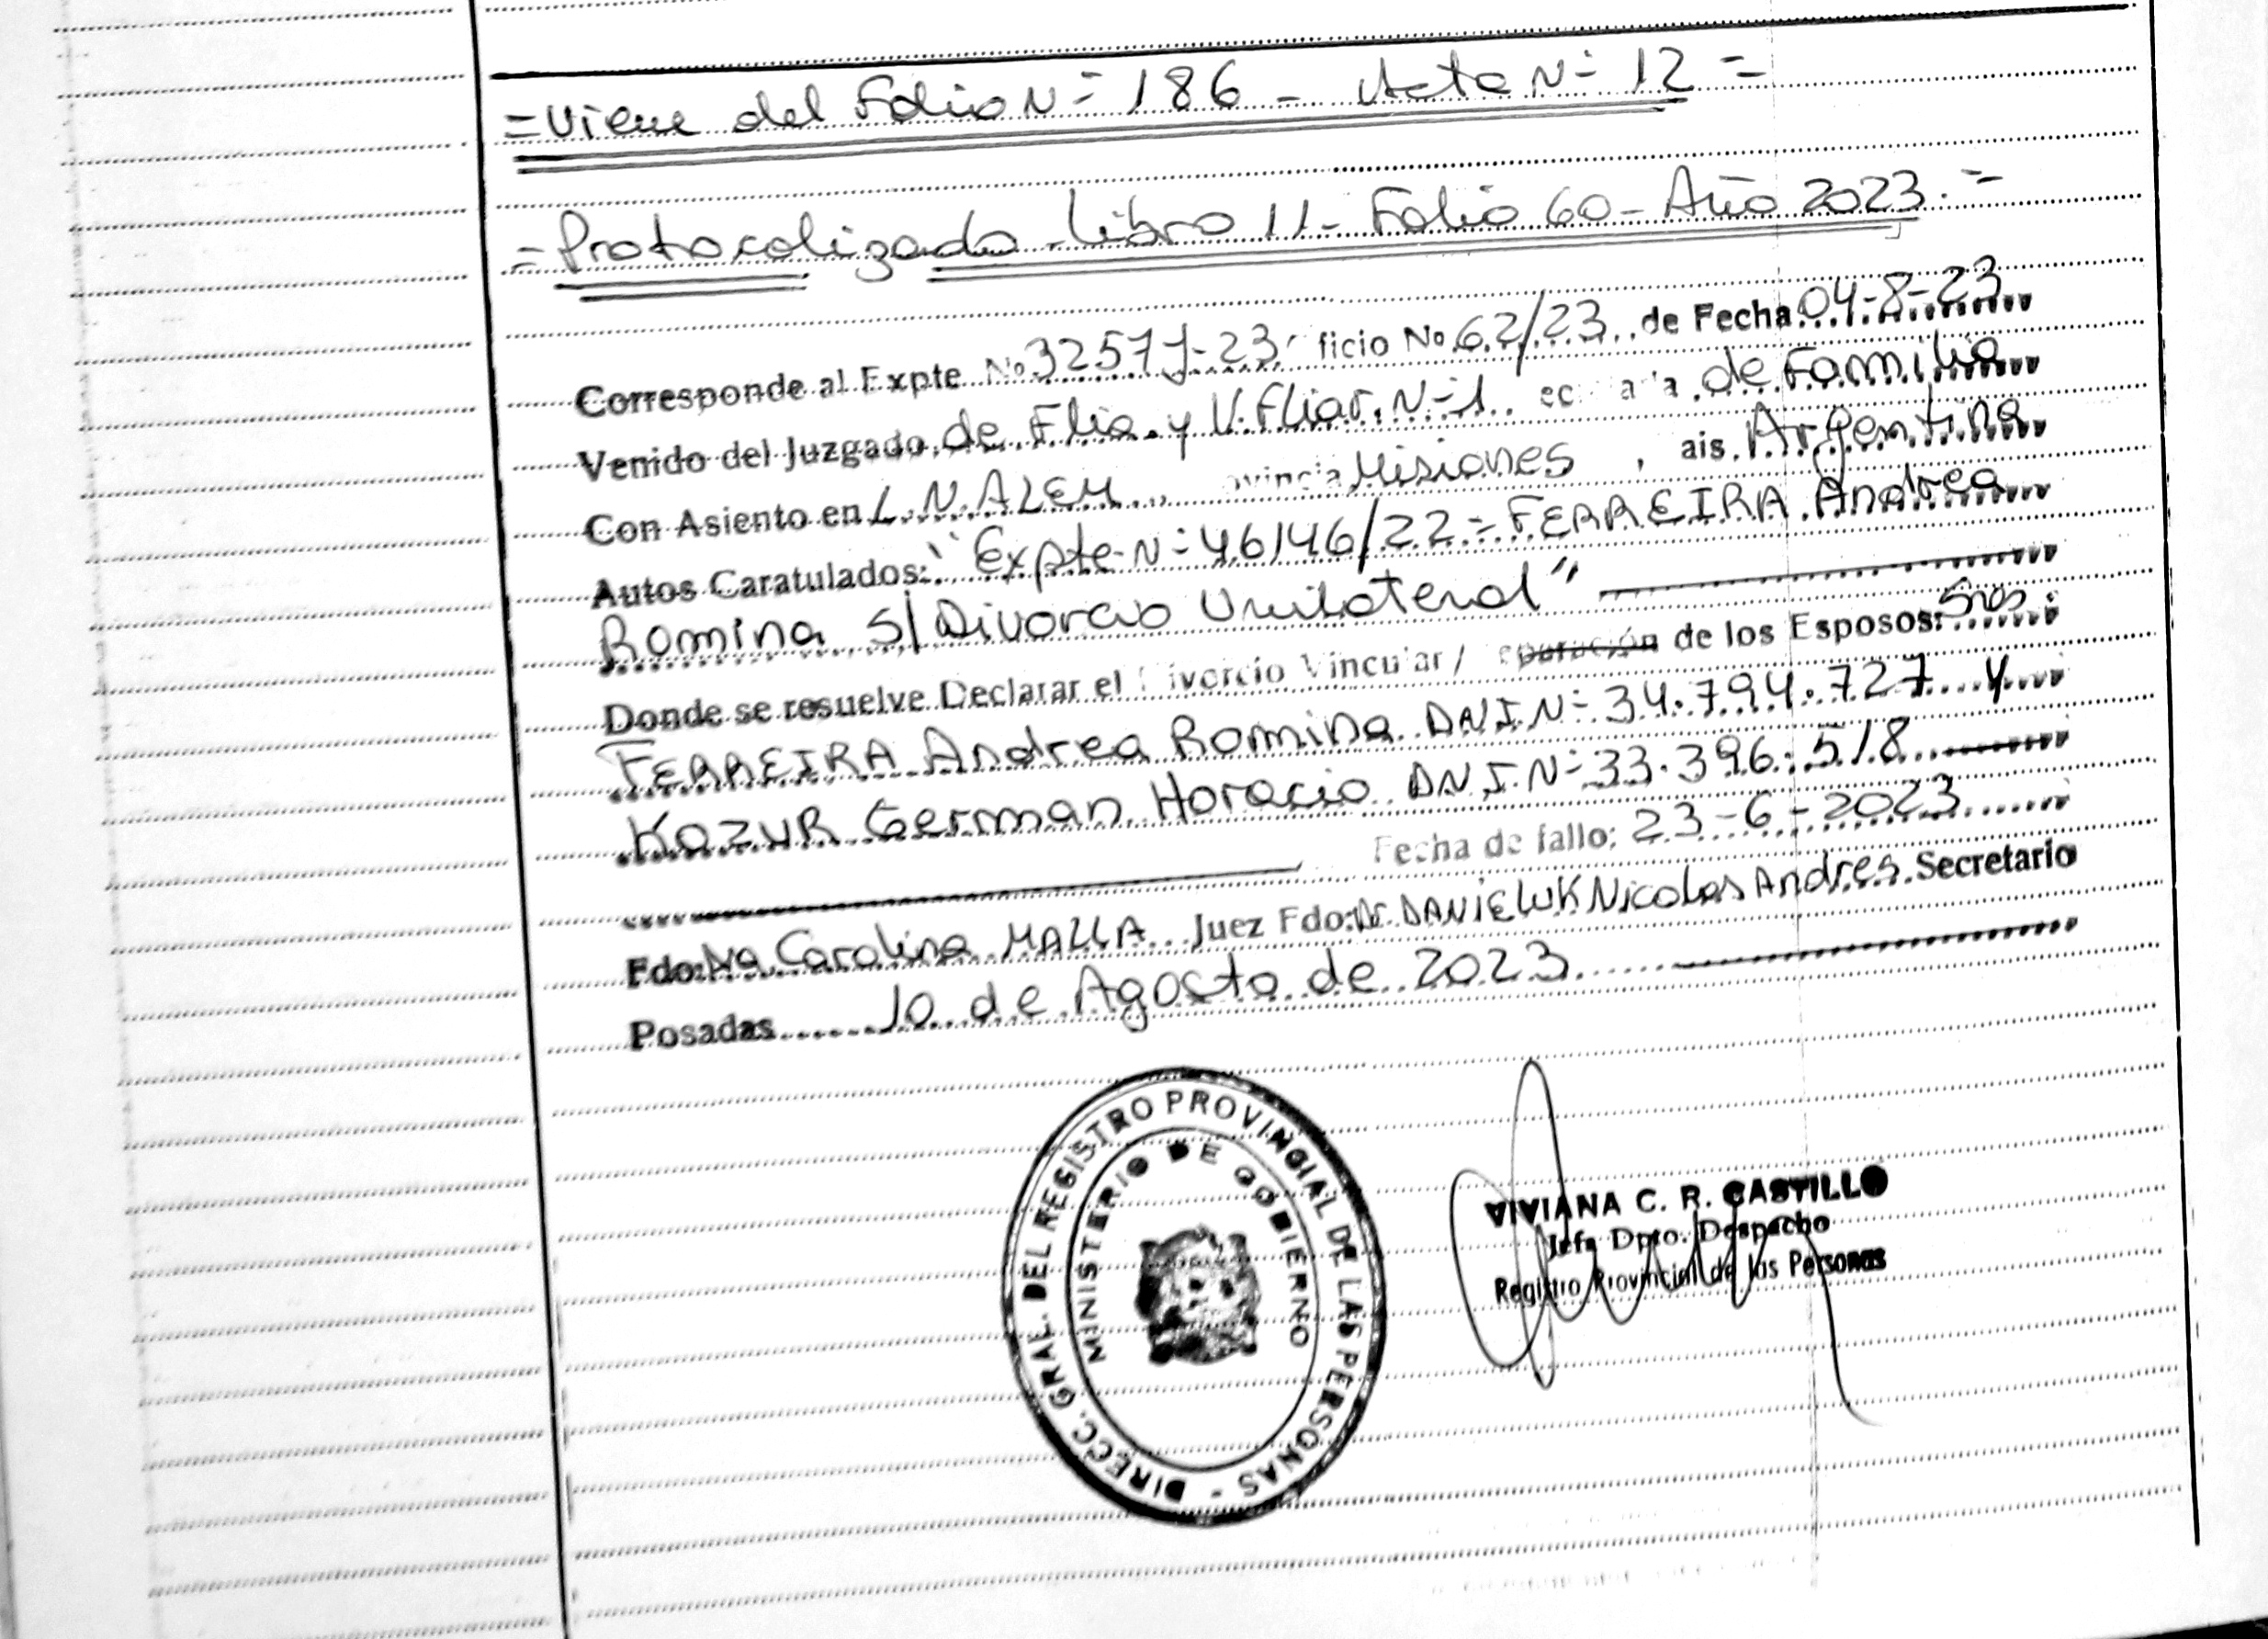 =Viene del Folio Nº 186 - Acta Nº 12 =
=Protocolizado Libro 11- Folio 60- Año 2023. =
Corresponde al Expte Nº 3257 J-23 ficio Nº 62/23 de Fecha 04-8-23
Venido del Juzgado de Flia. y V. Fliar. Nº 1 de Familia
Con Asiento en L. N. ALEM ovincia Misiones , ais Argentina
Autos Caratulados: "Expte Nº 46146/22 = FERREIRA Andrea
Romina S/ Divorcio Unilateral"
Donde se resuelve Declarar el ivorcio Vincular/ eparación de los Esposos: Sres:
FERREIRA Andrea Romina D.N.I. Nº 34.794.727 y
KOZUR German Horacio D.N.I. Nº 33.396.518
Fecha de fallo: 23-6-2023
Fdo: Carolina MALLA Juez Fdo: Dr. DANIELUK Nicolas Andres Secretario
Posadas 10 de Agosto de 2023
DIRECC. GRAL. DEL REGISTRO PROVINCIAL DE LAS PERSONAS -
MINISTERIO DE GOBIERNO
VIVIANA C. R. CASTILLO
Jefa Dpto. Despacho
Registro Provincial de las Personas